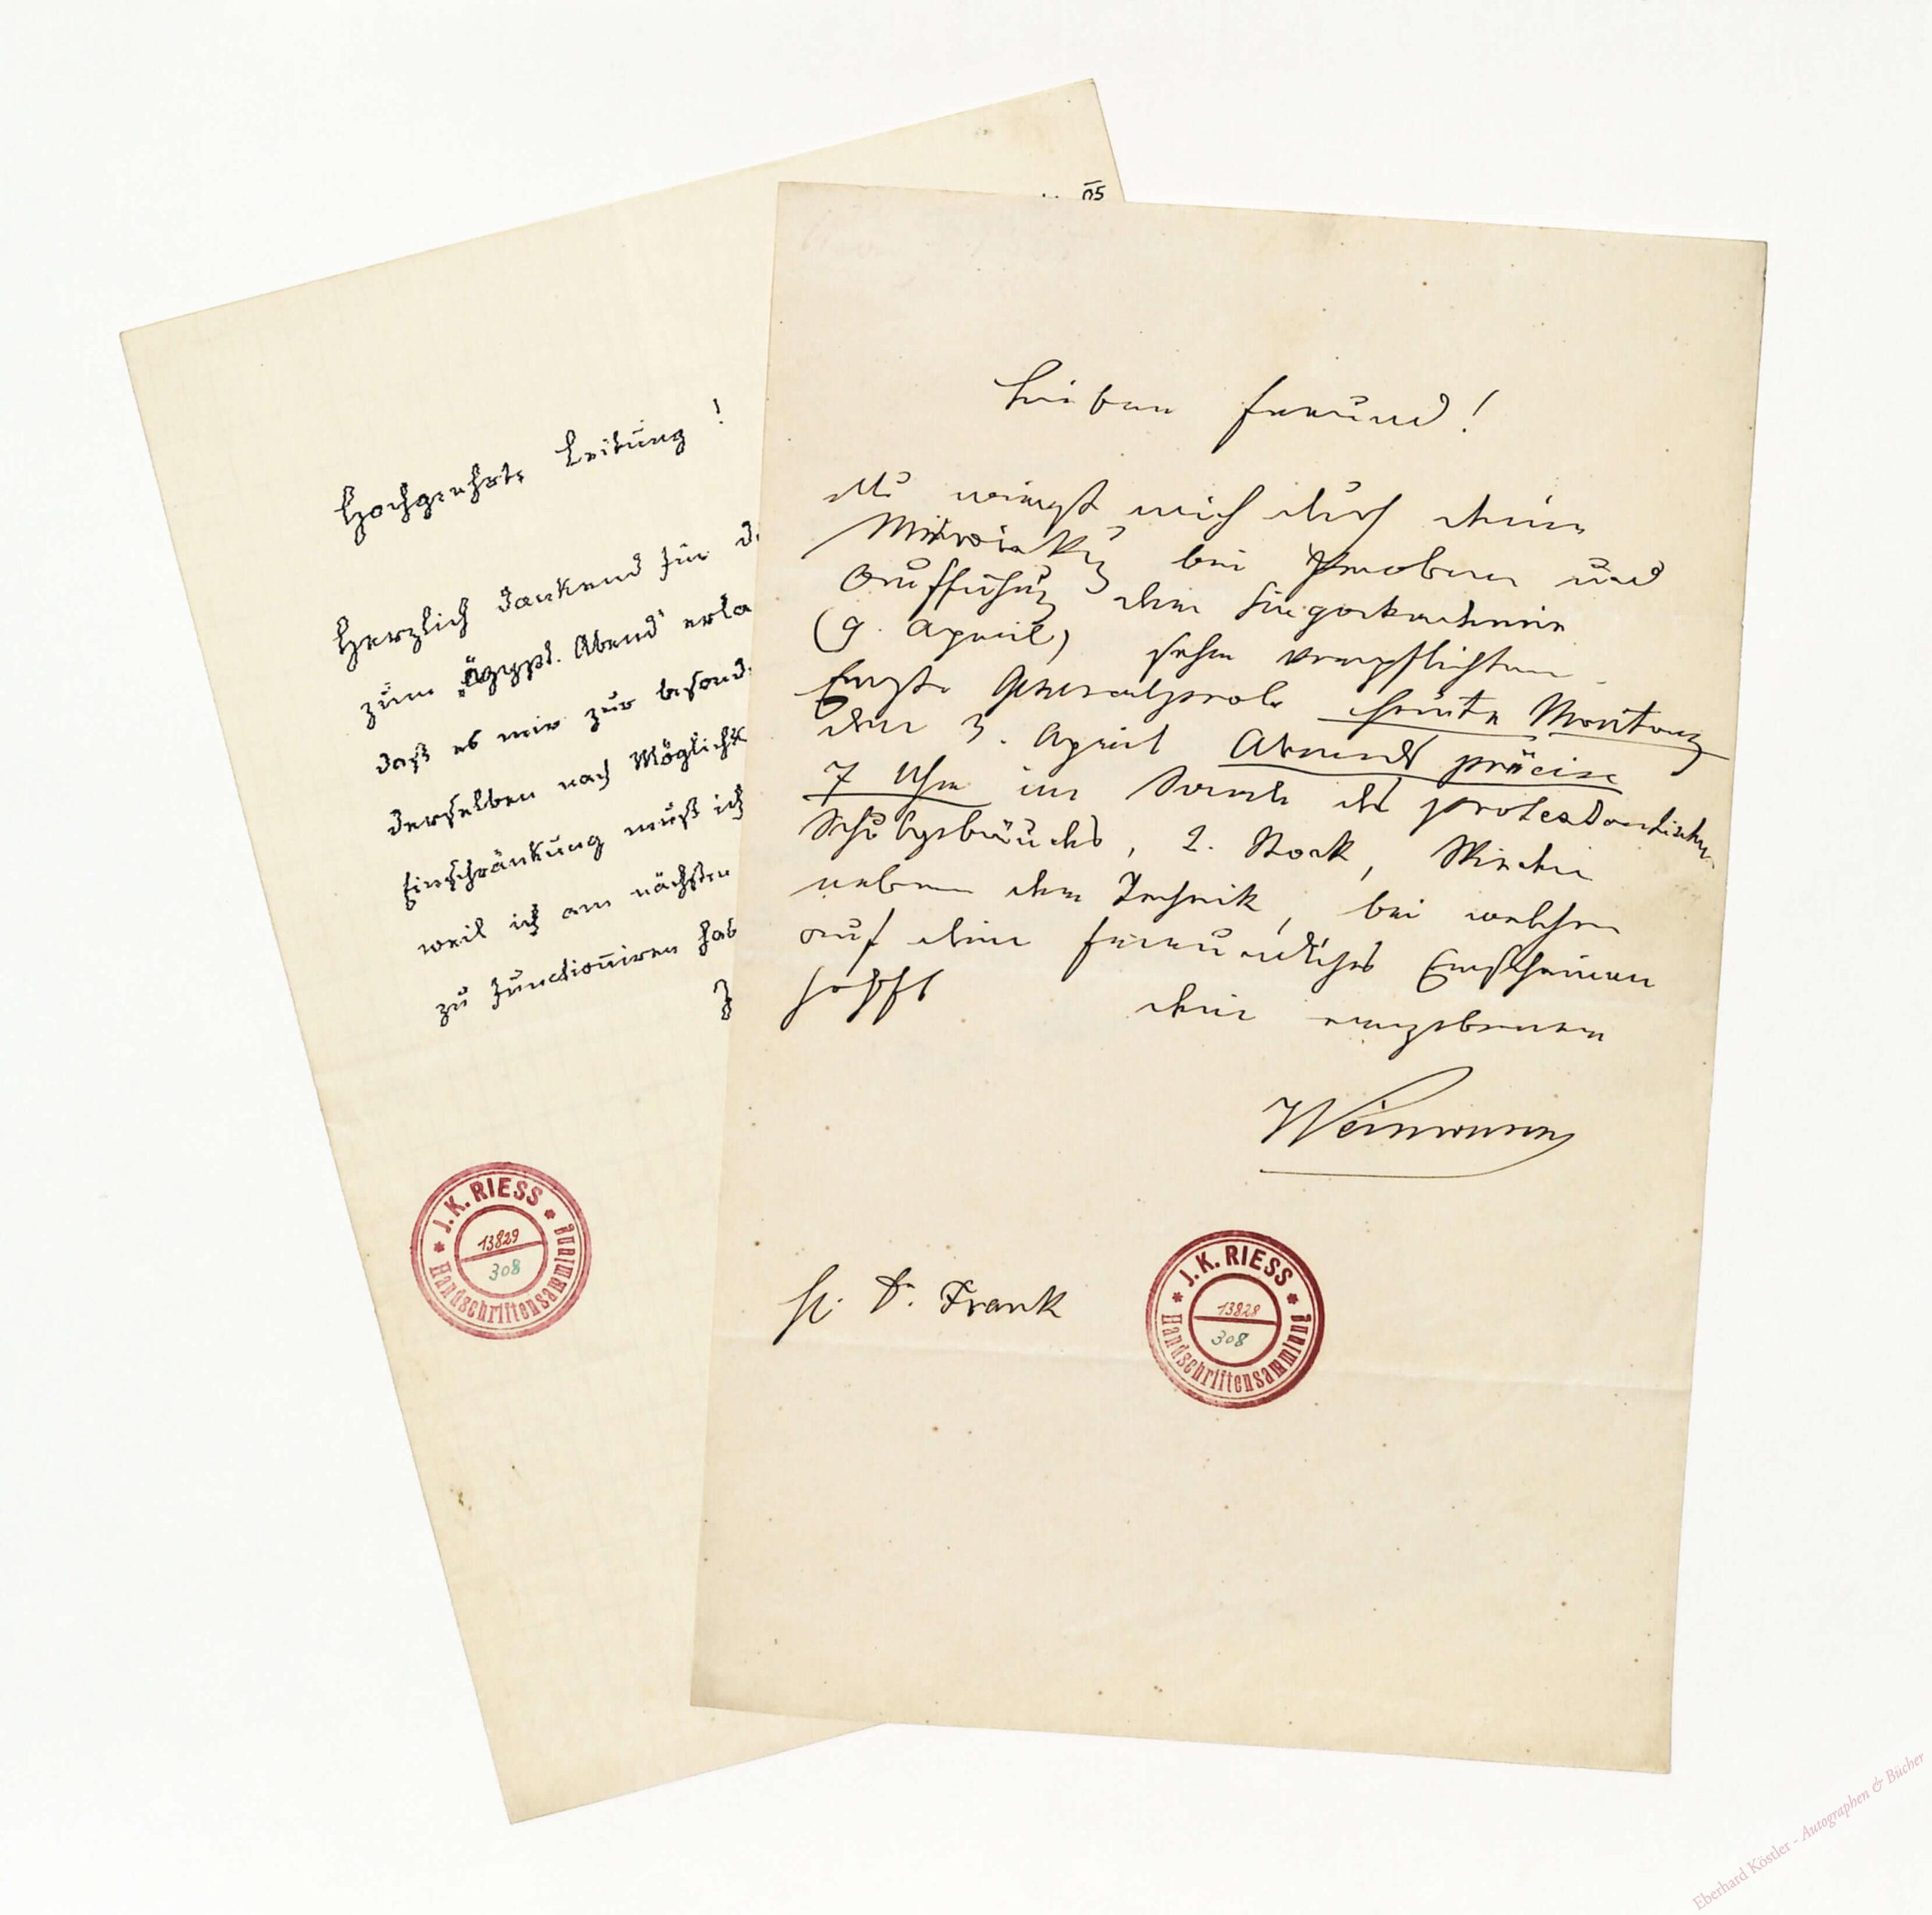 05
Hochgeehrte Leitung!
Herzlich dankend für
zum „Ägypt. Abend" erla
daß es mir zur besond
derselben nach Möglichk
Einschränkung muß ich
weil ich am nächsten
zu functioniren hab
Lieber Freund!
Du mich durch deine
Mitwirkung bei Proben und
Aufführung der Singakademie
(9. April) sehr verpflichten.
Erste Generalprobe heute Montag
den 3. April Abends präcise
7 Uhr im Saale des protestantischen
Schulgebäudes, 2. Stock, Wieden
neben der Technik, bei welcher
auf dein freundliches Erscheinen
hofft dein ergebener
Weinwurm
H. Dr. Frank
J. K. RIESS
13829
308
Handschriftensammlung
J. K. RIESS
13828
308
Handschriftensammlung
Eberhard Köstler - Autographen & Bücher